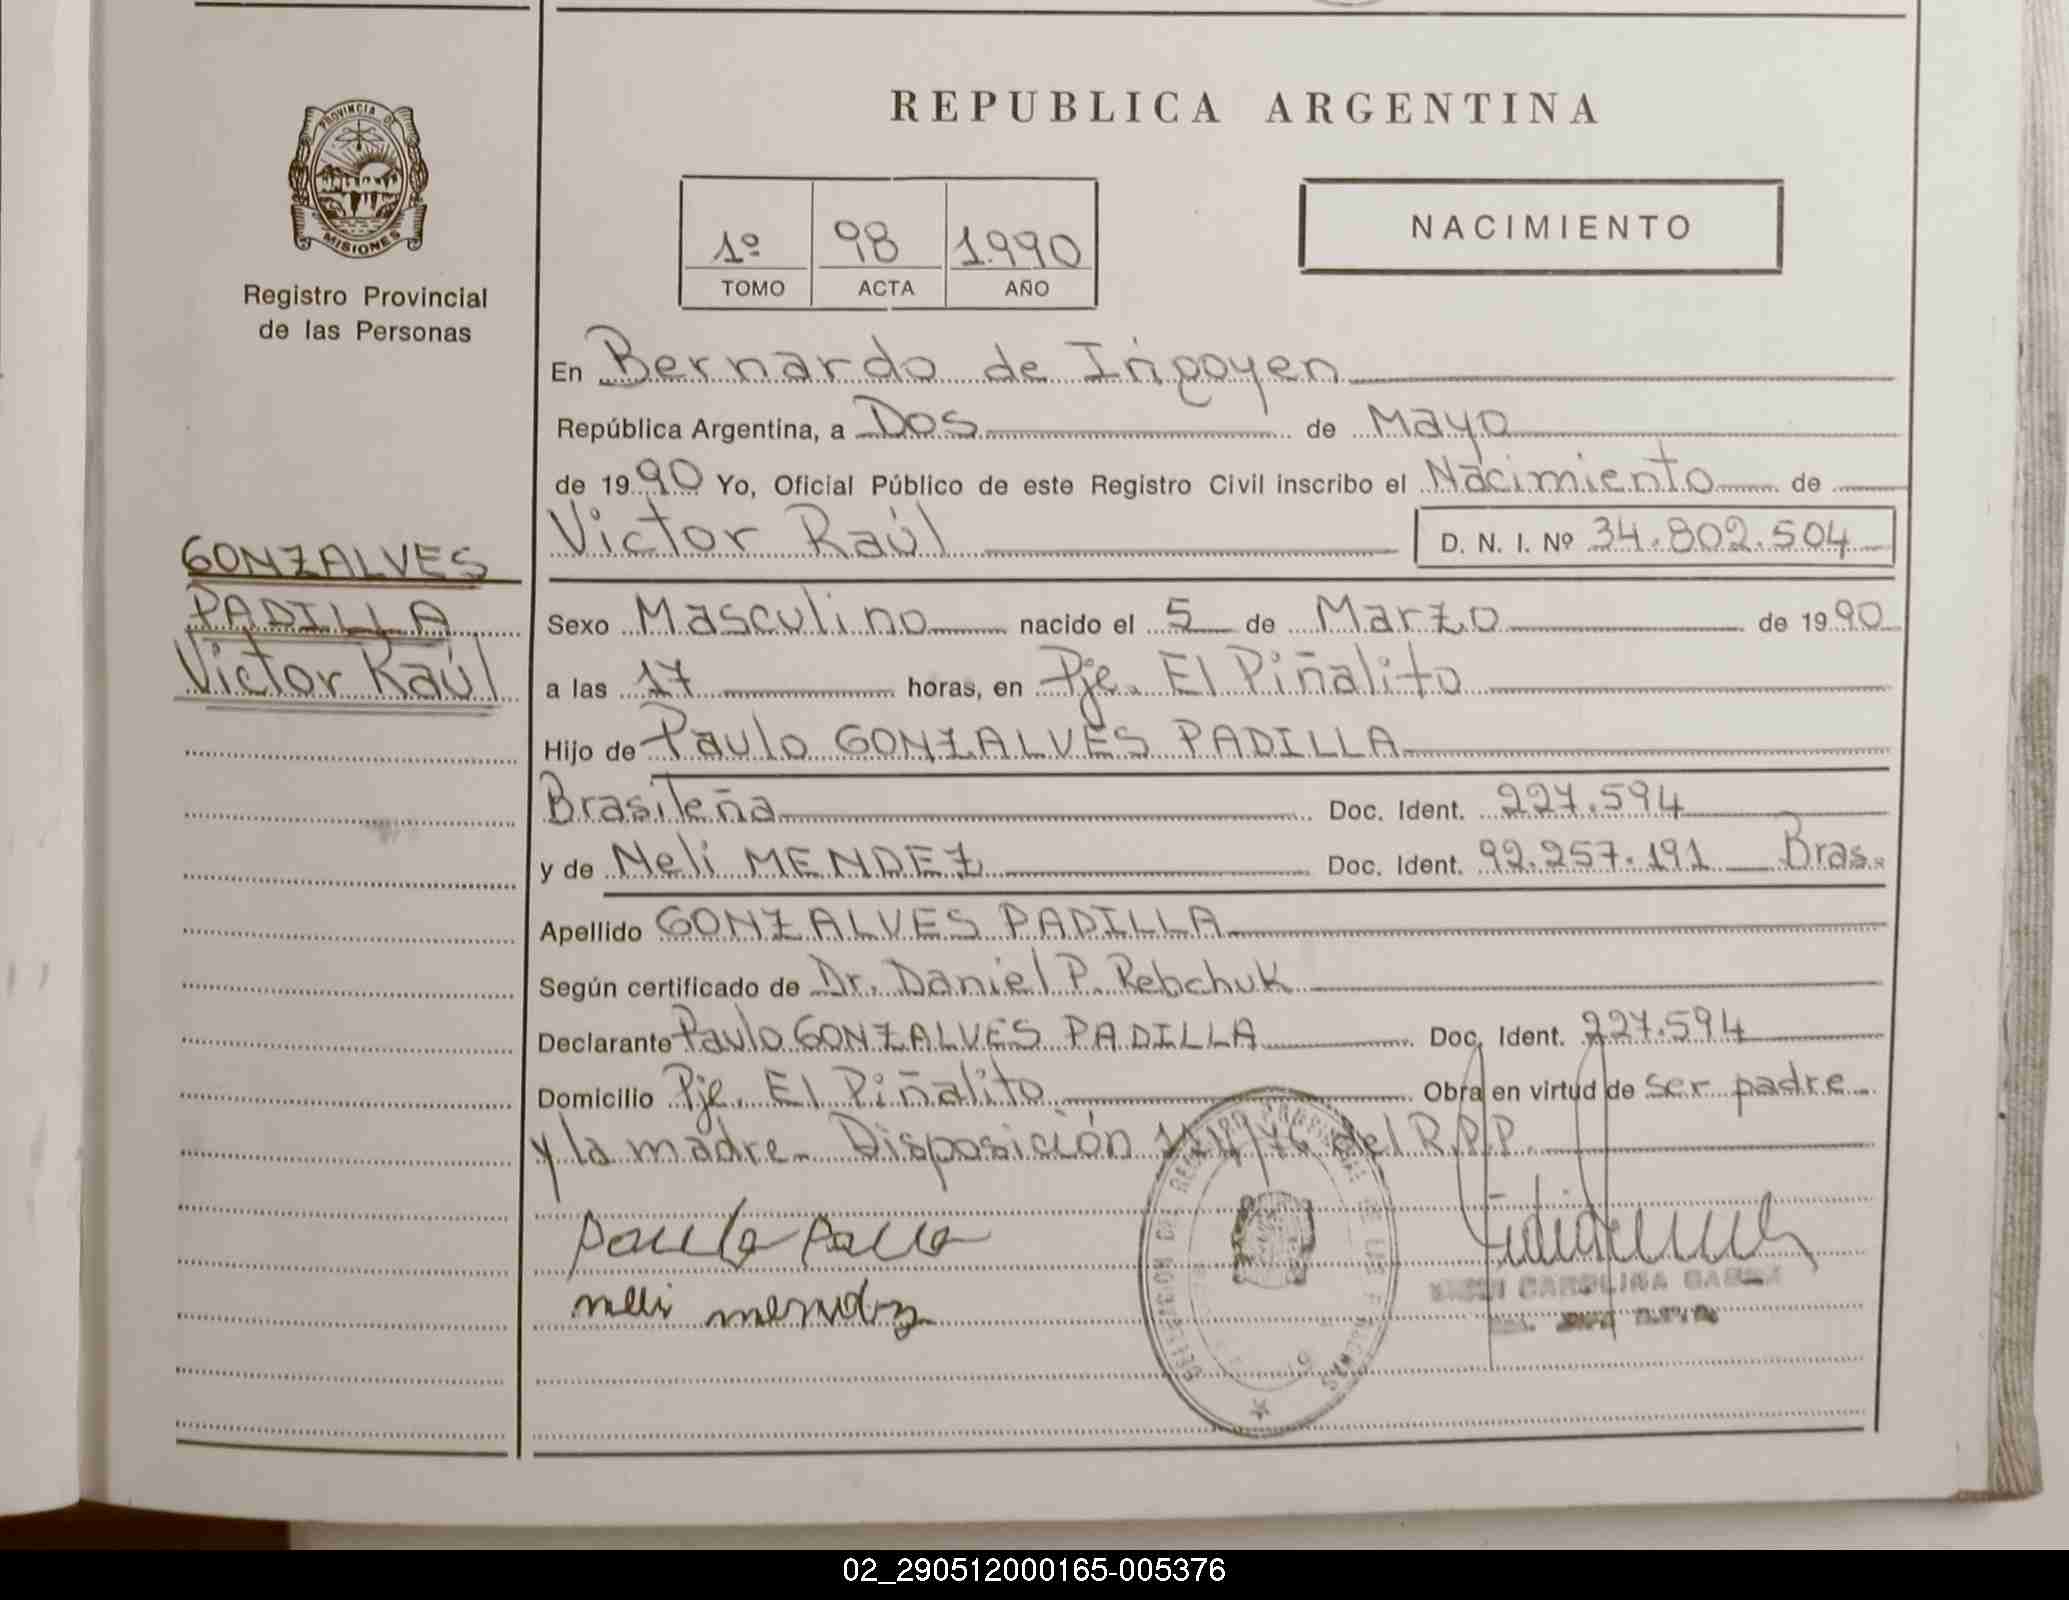 PROVINCIA DE
MISIONES
Registro Provincial
de las Personas
GONZALVES
PADILLA
Victor Raúl
REPUBLICA ARGENTINA
1º 98 1.990
TOMO ACTA AÑO
NACIMIENTO
En Bernardo de Irigoyen
República Argentina, a Dos de Mayo
de 1990 Yo, Oficial Público de este Registro Civil inscribo el Nacimiento de
Victor Raúl D. N. I. Nº 34.802.504
Sexo Masculino nacido el 5 de Marzo de 1990
a las 17 horas, en Pje. El Piñalito
Hijo de Paulo GONZALVES PADILLA
Brasileña Doc. Ident. 227.594
y de Neli MENDEZ Doc. Ident. 92.257.191 Bras.
Apellido GONZALVES PADILLA
Según certificado de Dr. Daniel P. Rebchuk
Declarante Paulo GONZALVES PADILLA Doc. Ident. 227.594
Domicilio Pje. El Piñalito Obra en virtud de ser padre
y la madre. Disposición del R.P.P.
neli mendez
CAROLINA
02_290512000165-005376